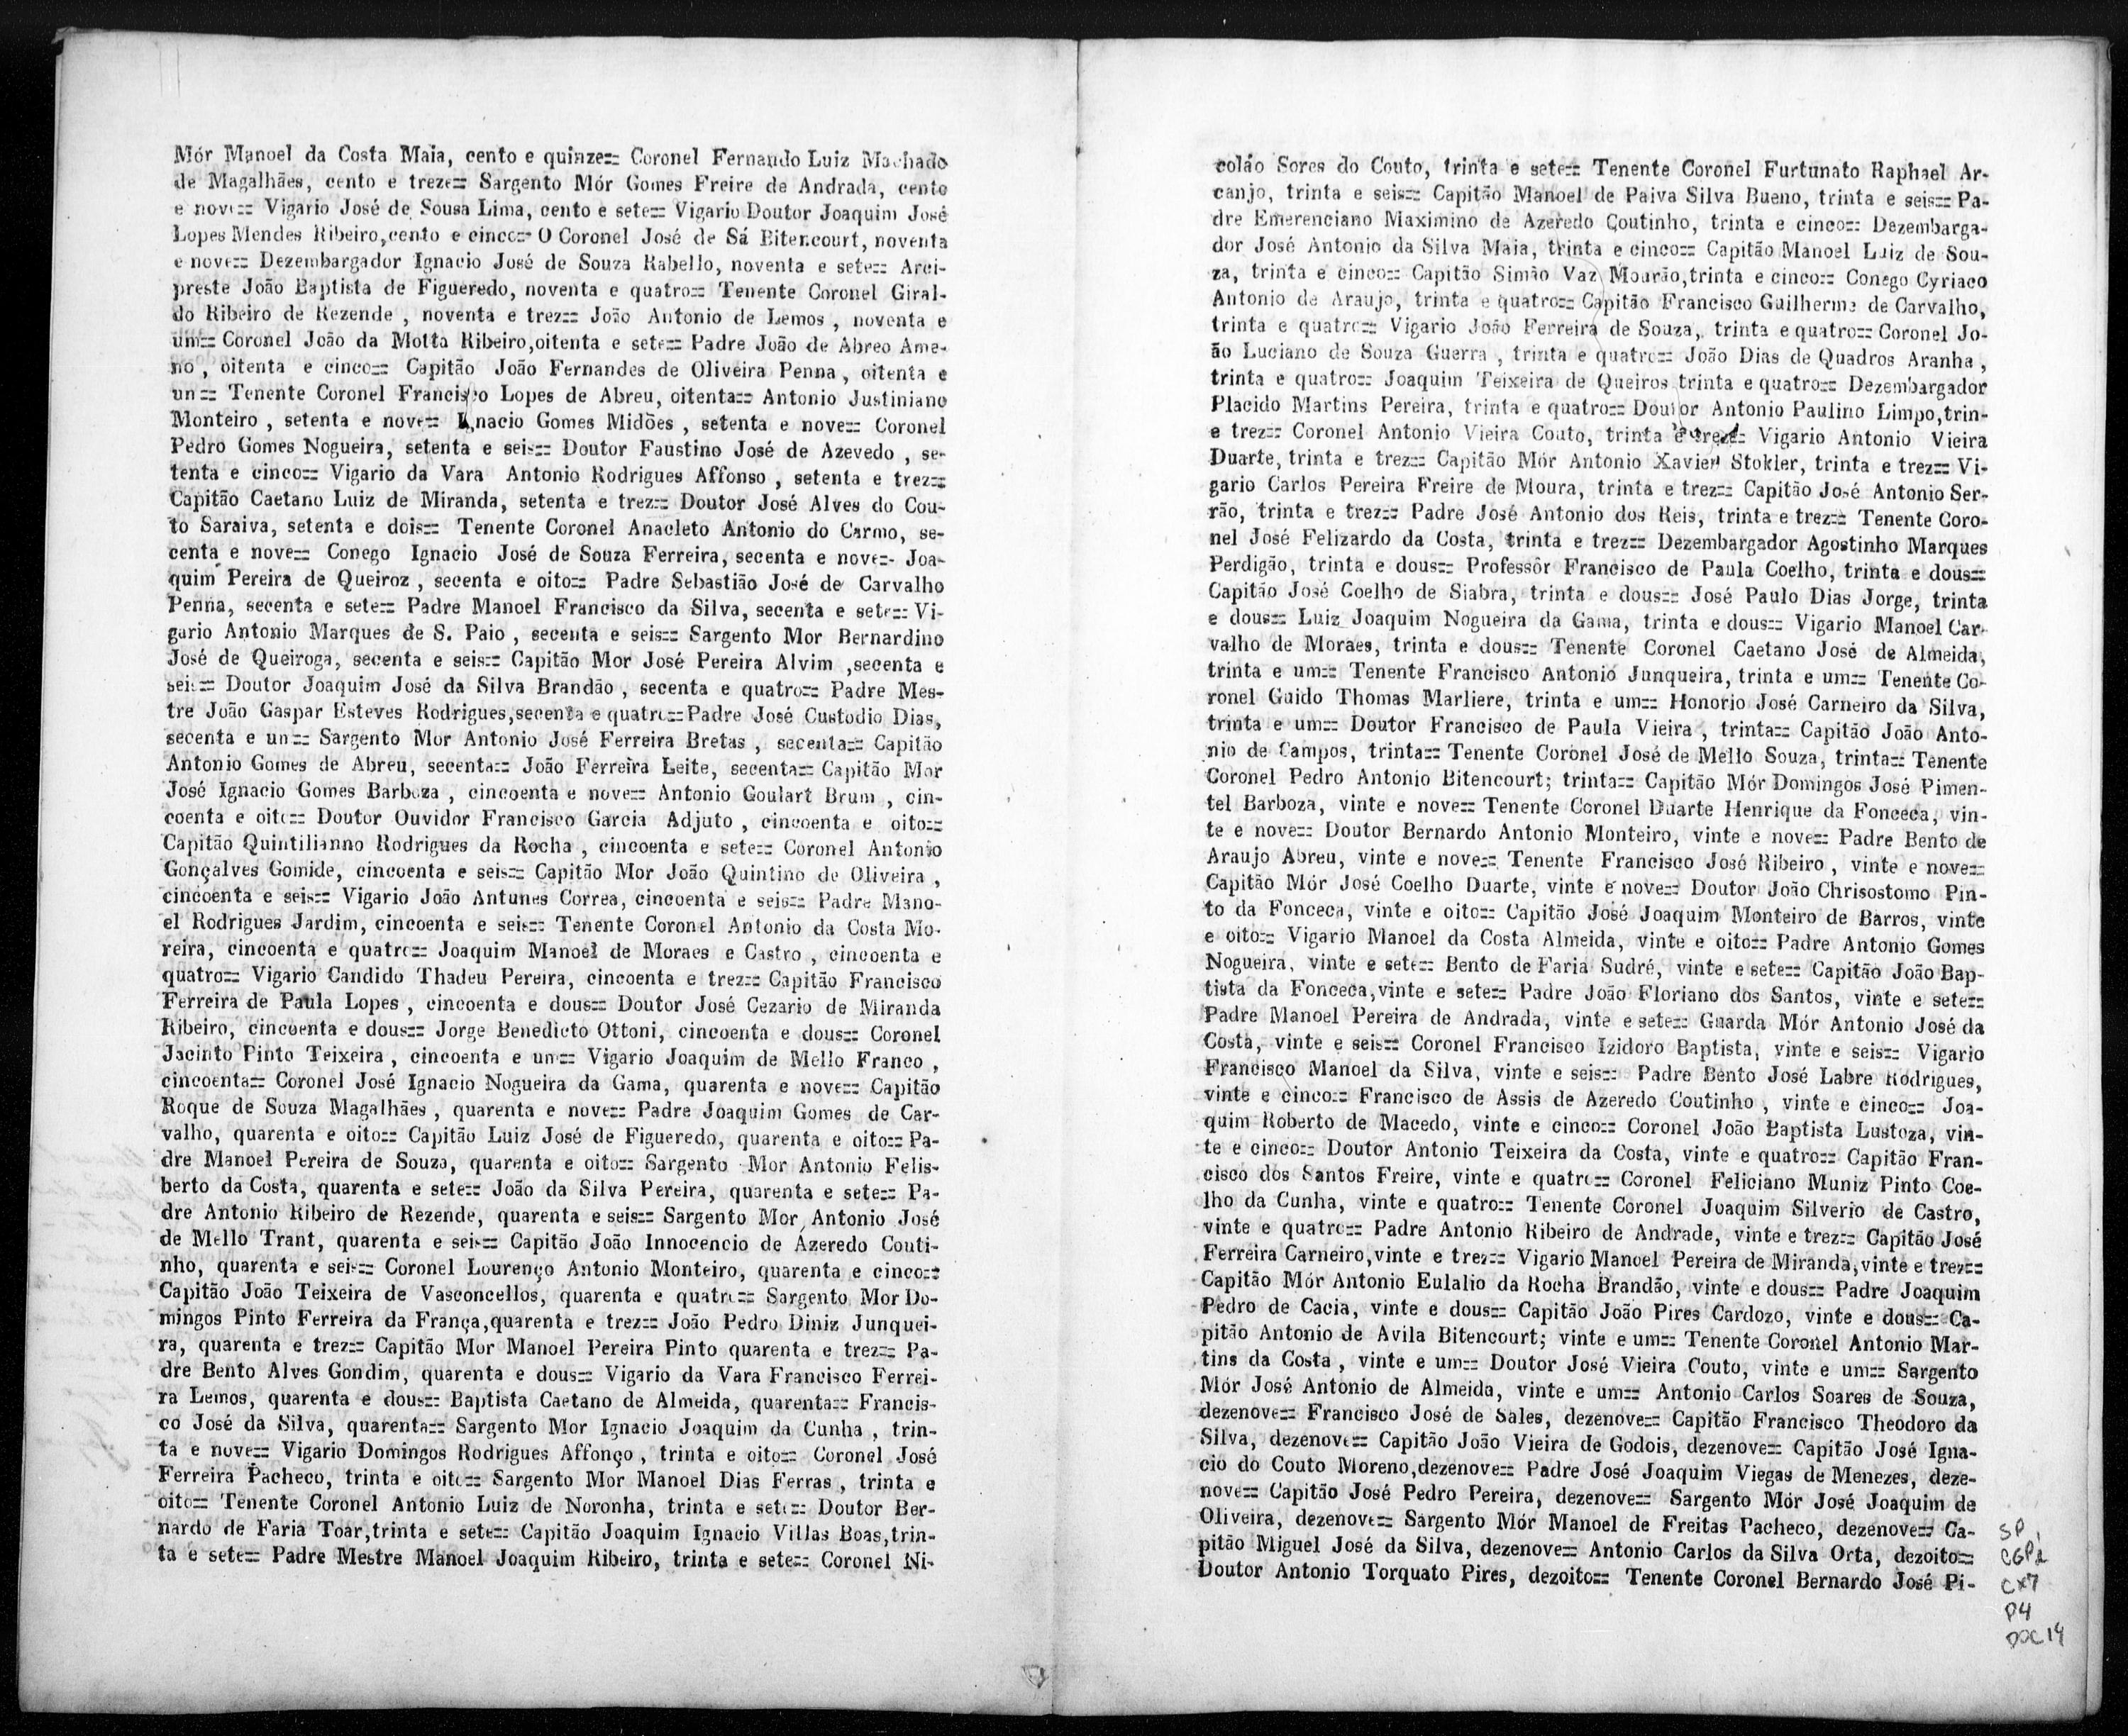 Mór Manoel da Costa Maia, cento e quinze== Coronel Fernando Luiz Machado
de Magalhães, cento e treze== Sargento Mór Gomes Freire de Andrada, cento
e nove== Vigario José de Sousa Lima, cento e sete== Vigario Doutor Joaquim José
Lopes Mendes Ribeiro,cento e cinco== O Coronel José de Sá Bitencourt, noventa
e nove== Dezembargador Ignacio José de Souza Rabello, noventa e sete== Arci-
preste João Baptista de Figueredo, noventa e quatro== Tenente Coronel Giral-
do Ribeiro de Rezende , noventa e trez== João Antonio de Lemos , noventa e
um== Coronel João da Motta Ribeiro,oitenta e sete== Padre João de Abreo Ame-
no , oitenta e cinco== Capitão João Fernandes de Oliveira Penna , oitenta e
un== Tenente Coronel Francisco Lopes de Abreu, oitenta== Antonio Justiniano
Monteiro , setenta e nove== Ignacio Gomes Midões , setenta e nove== Coronel
Pedro Gomes Nogueira, setenta e seis== Doutor Faustino José de Azevedo , se-
tenta e cinco== Vigario da Vara Antonio Rodrigues Affonso , setenta e trez==
Capitão Caetano Luiz de Miranda, setenta e trez== Doutor José Alves do Cou-
to Saraiva, setenta e dois== Tenente Coronel Anacleto Antonio do Carmo, se-
centa e nove== Conego Ignacio José de Souza Ferreira, secenta e nove=- Joa-
quim Pereira de Queiroz , secenta e oito== Padre Sebastião José de Carvalho
Penna, secenta e sete== Padre Manoel Francisco da Silva, secenta e sete== Vi-
gario Antonio Marques de S. Paio , secenta e seis== Sargento Mor Bernardino
José de Queiroga, secenta e seis== Capitão Mor José Pereira Alvim ,secenta e
seis== Doutor Joaquim José da Silva Brandão , secenta e quatro== Padre Mes-
tre João Gaspar Esteves Rodrigues,secenta e quatro== Padre José Custodio Dias,
secenta e un== Sargento Mor Antonio José Ferreira Bretas , secenta== Capitão
Antonio Gomes de Abreu, secenta== João Ferreira Leite, secenta== Capitão Mor
José Ignacio Gomes Barboza , cincoenta e nove== Antonio Goulart Brum , cin-
coenta e oito== Doutor Ouvidor Francisco Garcia Adjuto , cincoenta e oito==
Capitão Quintilianno Rodrigues da Rocha , cincoenta e sete== Coronel Antonio
Gonçalves Gomide, cincoenta e seis== Capitão Mor João Quintino de Oliveira ,
cincoenta e seis== Vigario João Antunes Correa, cincoenta e seis== Padre Mano-
el Rodrigues Jardim, cincoenta e seis== Tenente Coronel Antonio da Costa Mo-
reira, cincoenta e quatro== Joaquim Manoel de Moraes e Castro , cincoenta e
quatro== Vigario Candido Thadeu Pereira, cincoenta e trez== Capitão Francisco
Ferreira de Paula Lopes , cincoenta e dous== Doutor José Cezario de Miranda
Ribeiro, cincoenta e dous== Jorge Benedicto Ottoni, cincoenta e dous== Coronel
Jacinto Pinto Teixeira , cincoenta e un== Vigario Joaquim de Mello Franco ,
cincoenta== Coronel José Ignacio Nogueira da Gama, quarenta e nove== Capitão
Roque de Souza Magalhães , quarenta e nove== Padre Joaquim Gomes de Car-
valho, quarenta e oito== Capitão Luiz José de Figueredo, quarenta e oito== Pa-
dre Manoel Pereira de Souza, quarenta e oito== Sargento Mor Antonio Felis-
berto da Costa, quarenta e sete== João da Silva Pereira, quarenta e sete== Pa-
dre Antonio Ribeiro de Rezende, quarenta e seis== Sargento Mor Antonio José
de Mello Trant, quarenta e seis== Capitão João Innocencio de Azeredo Couti-
nho, quarenta e seis== Coronel Lourenço Antonio Monteiro, quarenta e cinco==
Capitão João Teixeira de Vasconcellos, quarenta e quatro== Sargento Mor Do-
mingos Pinto Ferreira da França,quarenta e trez== João Pedro Diniz Junquei-
ra, quarenta e trez== Capitão Mor Manoel Pereira Pinto quarenta e trez== Pa-
dre Bento Alves Gondim, quarenta e dous== Vigario da Vara Francisco Ferrei-
ra Lemos, quarenta e dous== Baptista Caetano de Almeida, quarenta== Francis-
co José da Silva, quarenta== Sargento Mor Ignacio Joaquim da Cunha , trin-
ta e nove== Vigario Domingos Rodrigues Affonço , trinta e oito== Coronel José
Ferreira Pacheco, trinta e oito== Sargento Mor Manoel Dias Ferras , trinta e
oito== Tenente Coronel Antonio Luiz de Noronha, trinta e sete== Doutor Ber-
nardo de Faria Toar,trinta e sete== Capitão Joaquim Ignacio Villas Boas,trin-
ta e sete== Padre Mestre Manoel Joaquim Ribeiro, trinta e sete== Coronel Ni-
coláo Sores do Couto, trinta e sete== Tenente Coronel Furtunato Raphael Ar-
canjo, trinta e seis== Capitão Manoel de Paiva Silva Bueno, trinta e seis== Pa-
dre Emerenciano Maximino de Azeredo Coutinho, trinta e cinco== Dezembarga-
dor José Antonio da Silva Maia, trinta e cinco== Capitão Manoel Luiz de Sou-
za, trinta e cinco== Capitão Simão Vaz Mourão,trinta e cinco== Conego Cyriaco
Antonio de Araujo, trinta e quatro== Capitão Francisco Guilherme de Carvalho,
trinta e quatro== Vigario João Ferreira de Souza, trinta e quatro== Coronel Jo-
ão Luciano de Souza Guerra , trinta e quatro== João Dias de Quadros Aranha ,
trinta e quatro== Joaquim Teixeira de Queiros trinta e quatro== Dezembargador
Placido Martins Pereira, trinta e quatro== Doutor Antonio Paulino Limpo,trin-
e trez== Coronel Antonio Vieira Couto, trinta e trez== Vigario Antonio Vieira
Duarte, trinta e trez== Capitão Mór Antonio Xavier Stokler, trinta e trez== Vi-
gario Carlos Pereira Freire de Moura, trinta e trez== Capitão José Antonio Ser-
rão, trinta e trez== Padre José Antonio dos Reis, trinta e trez== Tenente Coro-
nel José Felizardo da Costa, trinta e trez== Dezembargador Agostinho Marques
Perdigão, trinta e dous== Professôr Francisco de Paula Coelho, trinta e dous==
Capitão José Coelho de Siabra, trinta e dous== José Paulo Dias Jorge, trinta
e dous== Luiz Joaquim Nogueira da Gama, trinta e dous== Vigario Manoel Car-
valho de Moraes, trinta e dous== Tenente Coronel Caetano José de Almeida,
trinta e um== Tenente Francisco Antonio Junqueira, trinta e um== Tenente Co-
ronel Guido Thomas Marliere, trinta e um== Honorio José Carneiro da Silva,
trinta e um== Doutor Francisco de Paula Vieira , trinta== Capitão João Anto-
nio de Campos, trinta== Tenente Coronel José de Mello Souza, trinta== Tenente
Coronel Pedro Antonio Bitencourt; trinta== Capitão Mór Domingos José Pimen-
tel Barboza, vinte e nove== Tenente Coronel Duarte Henrique da Fonceca, vin-
te e nove== Doutor Bernardo Antonio Monteiro, vinte e nove== Padre Bento de
Araujo Abreu, vinte e nove== Tenente Francisco José Ribeiro , vinte e nove==
Capitão Mór José Coelho Duarte, vinte e nove== Doutor João Chrisostomo Pin-
to da Fonceca, vinte e oito== Capitão José Joaquim Monteiro de Barros, vinte
e oito== Vigario Manoel da Costa Almeida, vinte e oito== Padre Antonio Gomes
Nogueira, vinte e sete== Bento de Faria Sudré, vinte e sete== Capitão João Bap-
tista da Fonceca,vinte e sete== Padre João Floriano dos Santos, vinte e sete==
Padre Manoel Pereira de Andrada, vinte e sete== Guarda Mór Antonio José da
Costa, vinte e seis== Coronel Francisco Izidoro Baptista, vinte e seis== Vigario
Francisco Manoel da Silva, vinte e seis== Padre Bento José Labre Rodrigues,
vinte e cinco== Francisco de Assis de Azeredo Coutinho , vinte e cinco== Joa-
quim Roberto de Macedo, vinte e cinco== Coronel João Baptista Lustoza, vin-
te e cinco== Doutor Antonio Teixeira da Costa, vinte e quatro== Capitão Fran-
cisco dos Santos Freire, vinte e quatro== Coronel Feliciano Muniz Pinto Coe-
lho da Cunha, vinte e quatro== Tenente Coronel Joaquim Silverio de Castro,
vinte e quatro== Padre Antonio Ribeiro de Andrade, vinte e trez== Capitão José
Ferreira Carneiro,vinte e trez== Vigario Manoel Pereira de Miranda,vinte e trez==
Capitão Mór Antonio Eulalio da Rocha Brandão, vinte e dous== Padre Joaquim
Pedro de Cacia, vinte e dous== Capitão João Pires Cardozo, vinte e dous== Ca-
pitão Antonio de Avila Bitencourt; vinte e um== Tenente Coronel Antonio Mar-
tins da Costa , vinte e um== Doutor José Vieira Couto, vinte e um== Sargento
Mór José Antonio de Almeida, vinte e um== Antonio Carlos Soares de Souza,
dezenove== Francisco José de Sales, dezenove== Capitão Francisco Theodoro da
Silva, dezenove== Capitão João Vieira de Godois, dezenove== Capitão José Igna-
cio do Couto Moreno,dezenove== Padre José Joaquim Viegas de Menezes, deze-
nove== Capitão José Pedro Pereira, dezenove== Sargento Mór José Joaquim de
Oliveira, dezenove== Sargento Mór Manoel de Freitas Pacheco, dezenove== Ca-
pitão Miguel José da Silva, dezenove== Antonio Carlos da Silva Orta, dezoito==
Doutor Antonio Torquato Pires, dezoito== Tenente Coronel Bernardo José Pi-
SP
CGP1
CX7
P4
DOC14